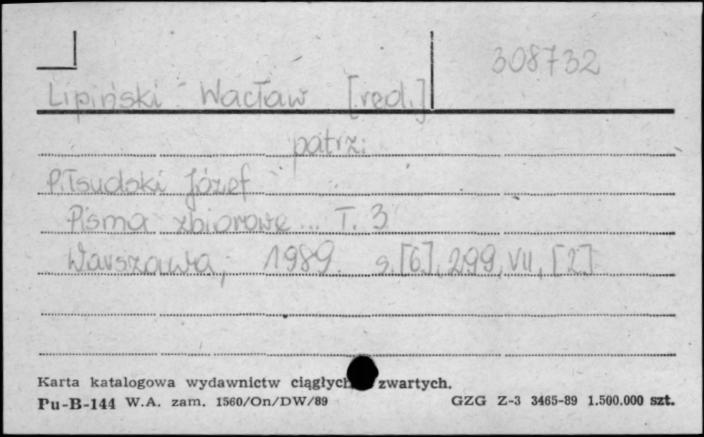 308732
Lipiński Wacław [red.]
patrz:
Piłsudski Józef
Pisma zbiorowe... T. 3
Warszawa, 1989. s. [6], 299, VII, [2]
Karta katalogowa wydawnictw ciągłych zwartych.
Pu-B-144 W.A. zam. 1560/On/DW/89 GZG Z-3 3465-89 1.500.000 szt.